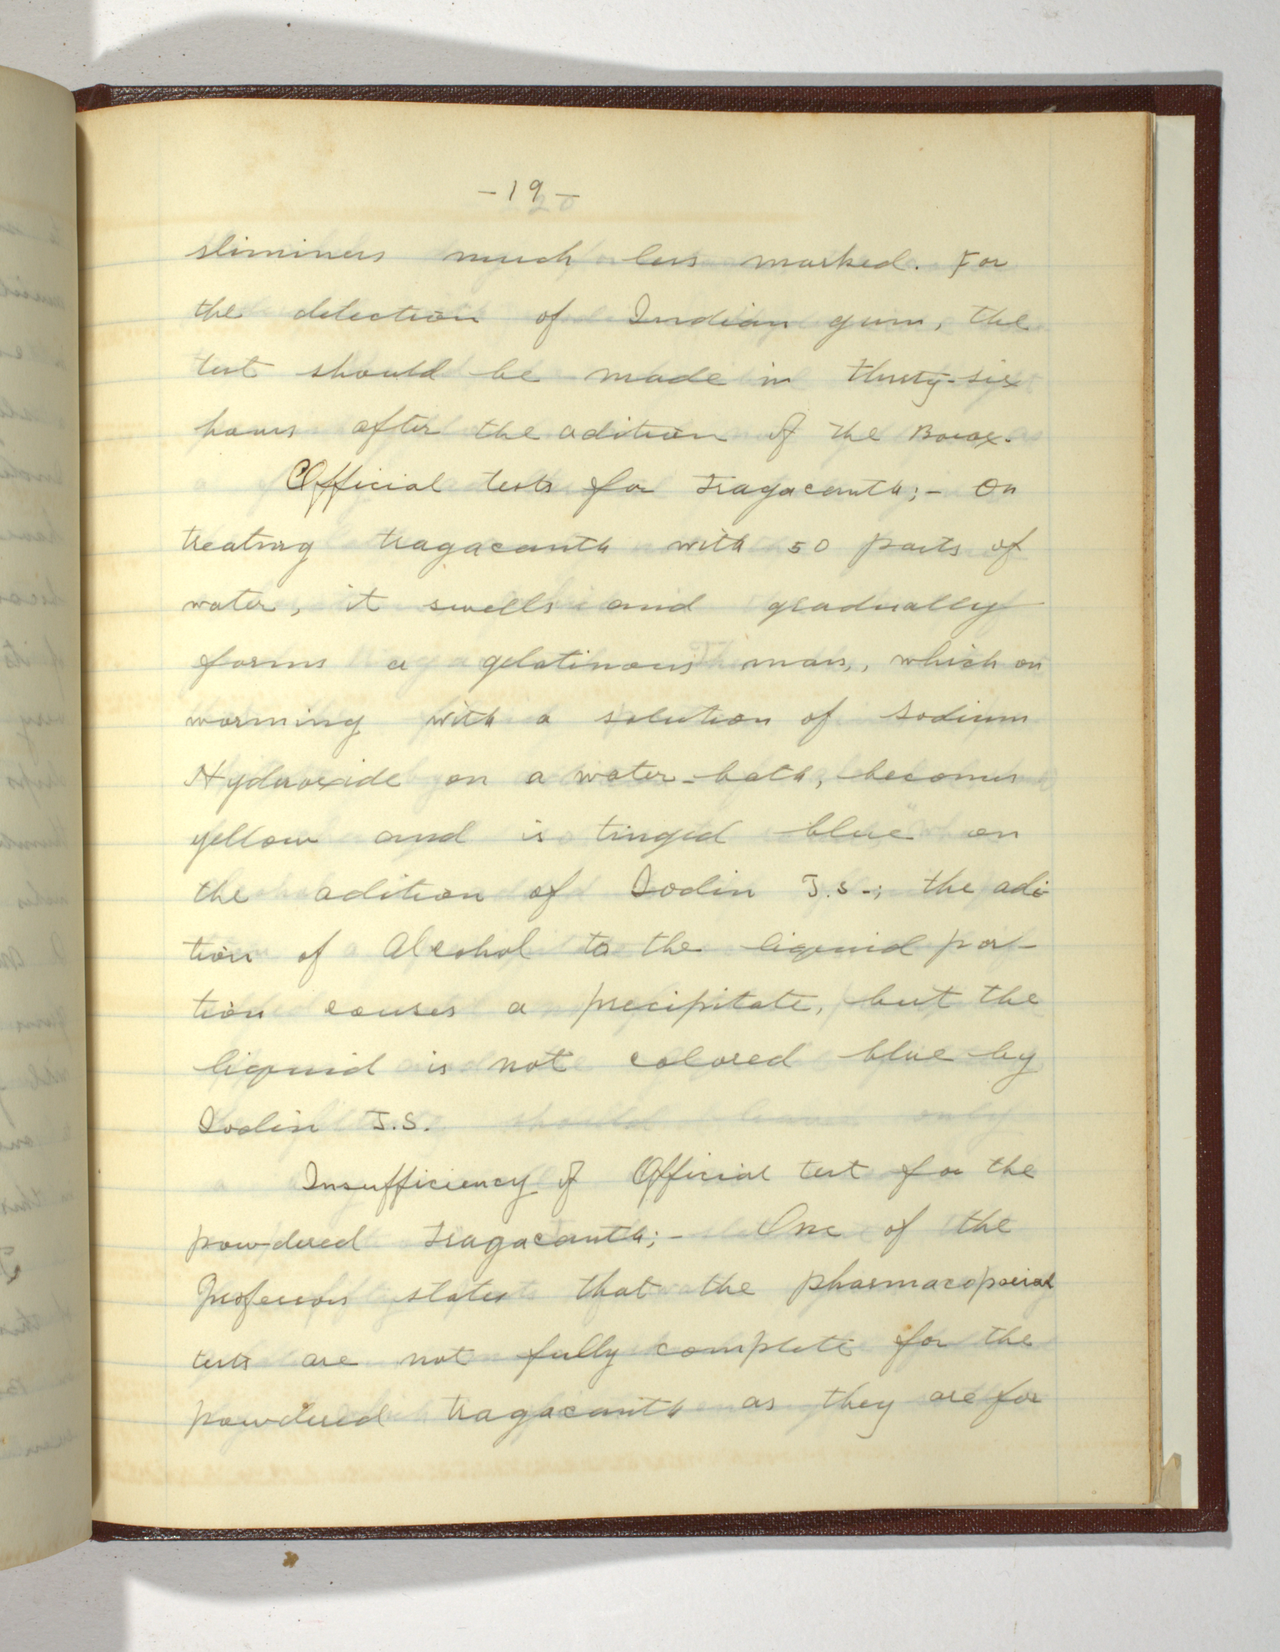 -19-
sliminess much less marked. For
the detection of Indian gum, the
test should be made in thirty-six
hours after the adition of the Borax.
Official tests for Tragacanth;- On
treating tragacanth with 50 parts of
water, it swells and gradually
forms a gelatinous mass, which on
warming with a solution of sodium
Hydroxide on a water-bath, becomes
yellow and is tinged blue on
the adition of Iodin T.S.; the adi-
tion of Alcohol to the liquid por-
tion causes a precipitate, but the
liquid is not colored blue by
Iodin T.S.
Insufficiency of Official test for the
powdered Tragacanth;- One of the
Professors states that the pharmacopoeial
tests are not fully complete for the
powdered tragacanth as they are for